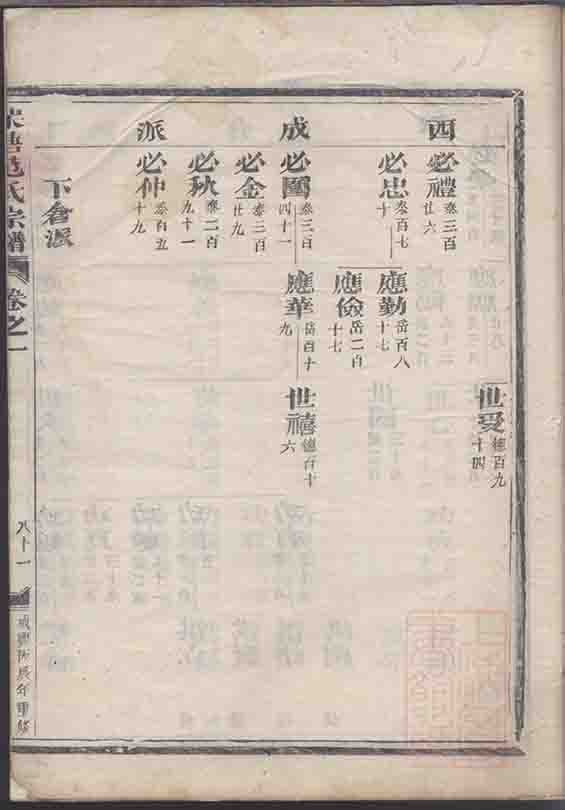 世受 德百九十四
西 必禮 泰三百廿六
必忠 泰百七十
應勤 岳百八十七
應儉 岳二百十七
成 必國 泰三百四十一
應華 岳百十九
世禧 德百十六
必金 泰三百廿九
必秋 泰二百九十一
派 必仲 泰百五十九
下倉派
宋塘范氏宗譜 卷之一 八十一 咸豐丙辰年重修